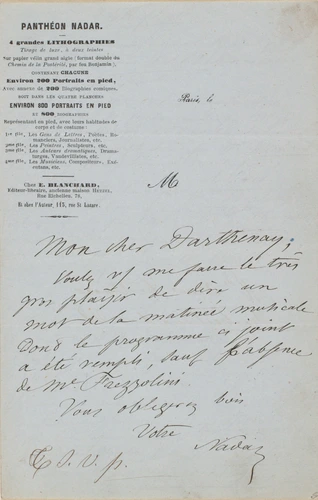 PANTHÉON NADAR.
4 grandes LITHOGRAPHIES
Tirage de luxe, à deux teintes
Sur papier vélin grand aigle (format double du
Chemin de la Postérité, par feu Benjamin);
CONTENANT CHACUNE
Environ 200 Portraits en pied,
Avec œuvre de 200 Biographies comiques,
SOIT DANS LES QUATRE PLANCHES
ENVIRON 800 PORTRAITS EN PIED
ET 800 BIOGRAPHIES
Représentant en pied, avec leurs habitudes de
corps et de costume:
1re flle, Les Gens de Lettres, Poëtes, Ro-
manciers, Journalistes, etc.
2me flle, Les Peintres, Sculpteurs, etc.
3me flle, Les Auteurs dramatiques, Drama-
turges, Vaudevillistes, etc.
4me flle, Les Musiciens, Compositeurs, Exé-
cutans, etc.
Chez E. BLANCHARD,
Éditeur-libraire, ancienne maison HETZEL,
Rue Richelieu, 78,
Et chez l'Auteur, 113, rue St Lazare.
Paris, le
M
Mon cher Darthenay,
Voulez vs me faire le très
gros plaisir de dire un
mot de la matinée musicale
Dont le programme ci joint
a été rempli, sauf l'absence
de Me Frezzolini
Vous obligerez bien
Votre
Nadar
T. S. V. p.